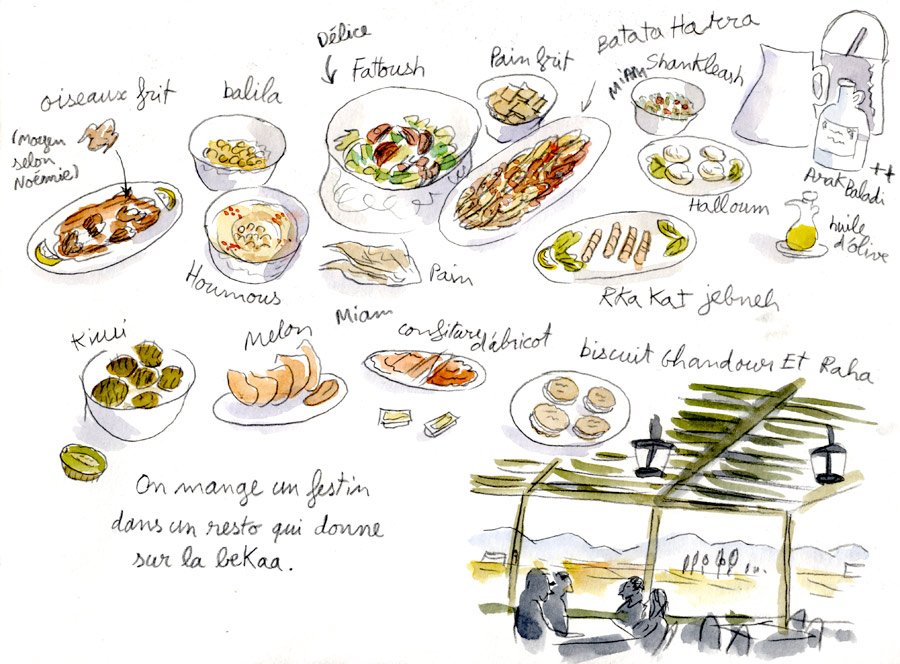 oiseaux frit
(Moyen
selon
Noémie)
balila
Houmous
Délice
Fattoush
Pain
Pain frit
Batata Harra
MIAM
Shankleesh
Halloum
Arak Baladi
++
huile
d'olive
RKa Kat jebneh
Kiwi
Melon
Miam
confiture
d'abricot
biscuit Ghandour Et Raha
On mange un festin
dans un resto qui donne
sur la beKaa.